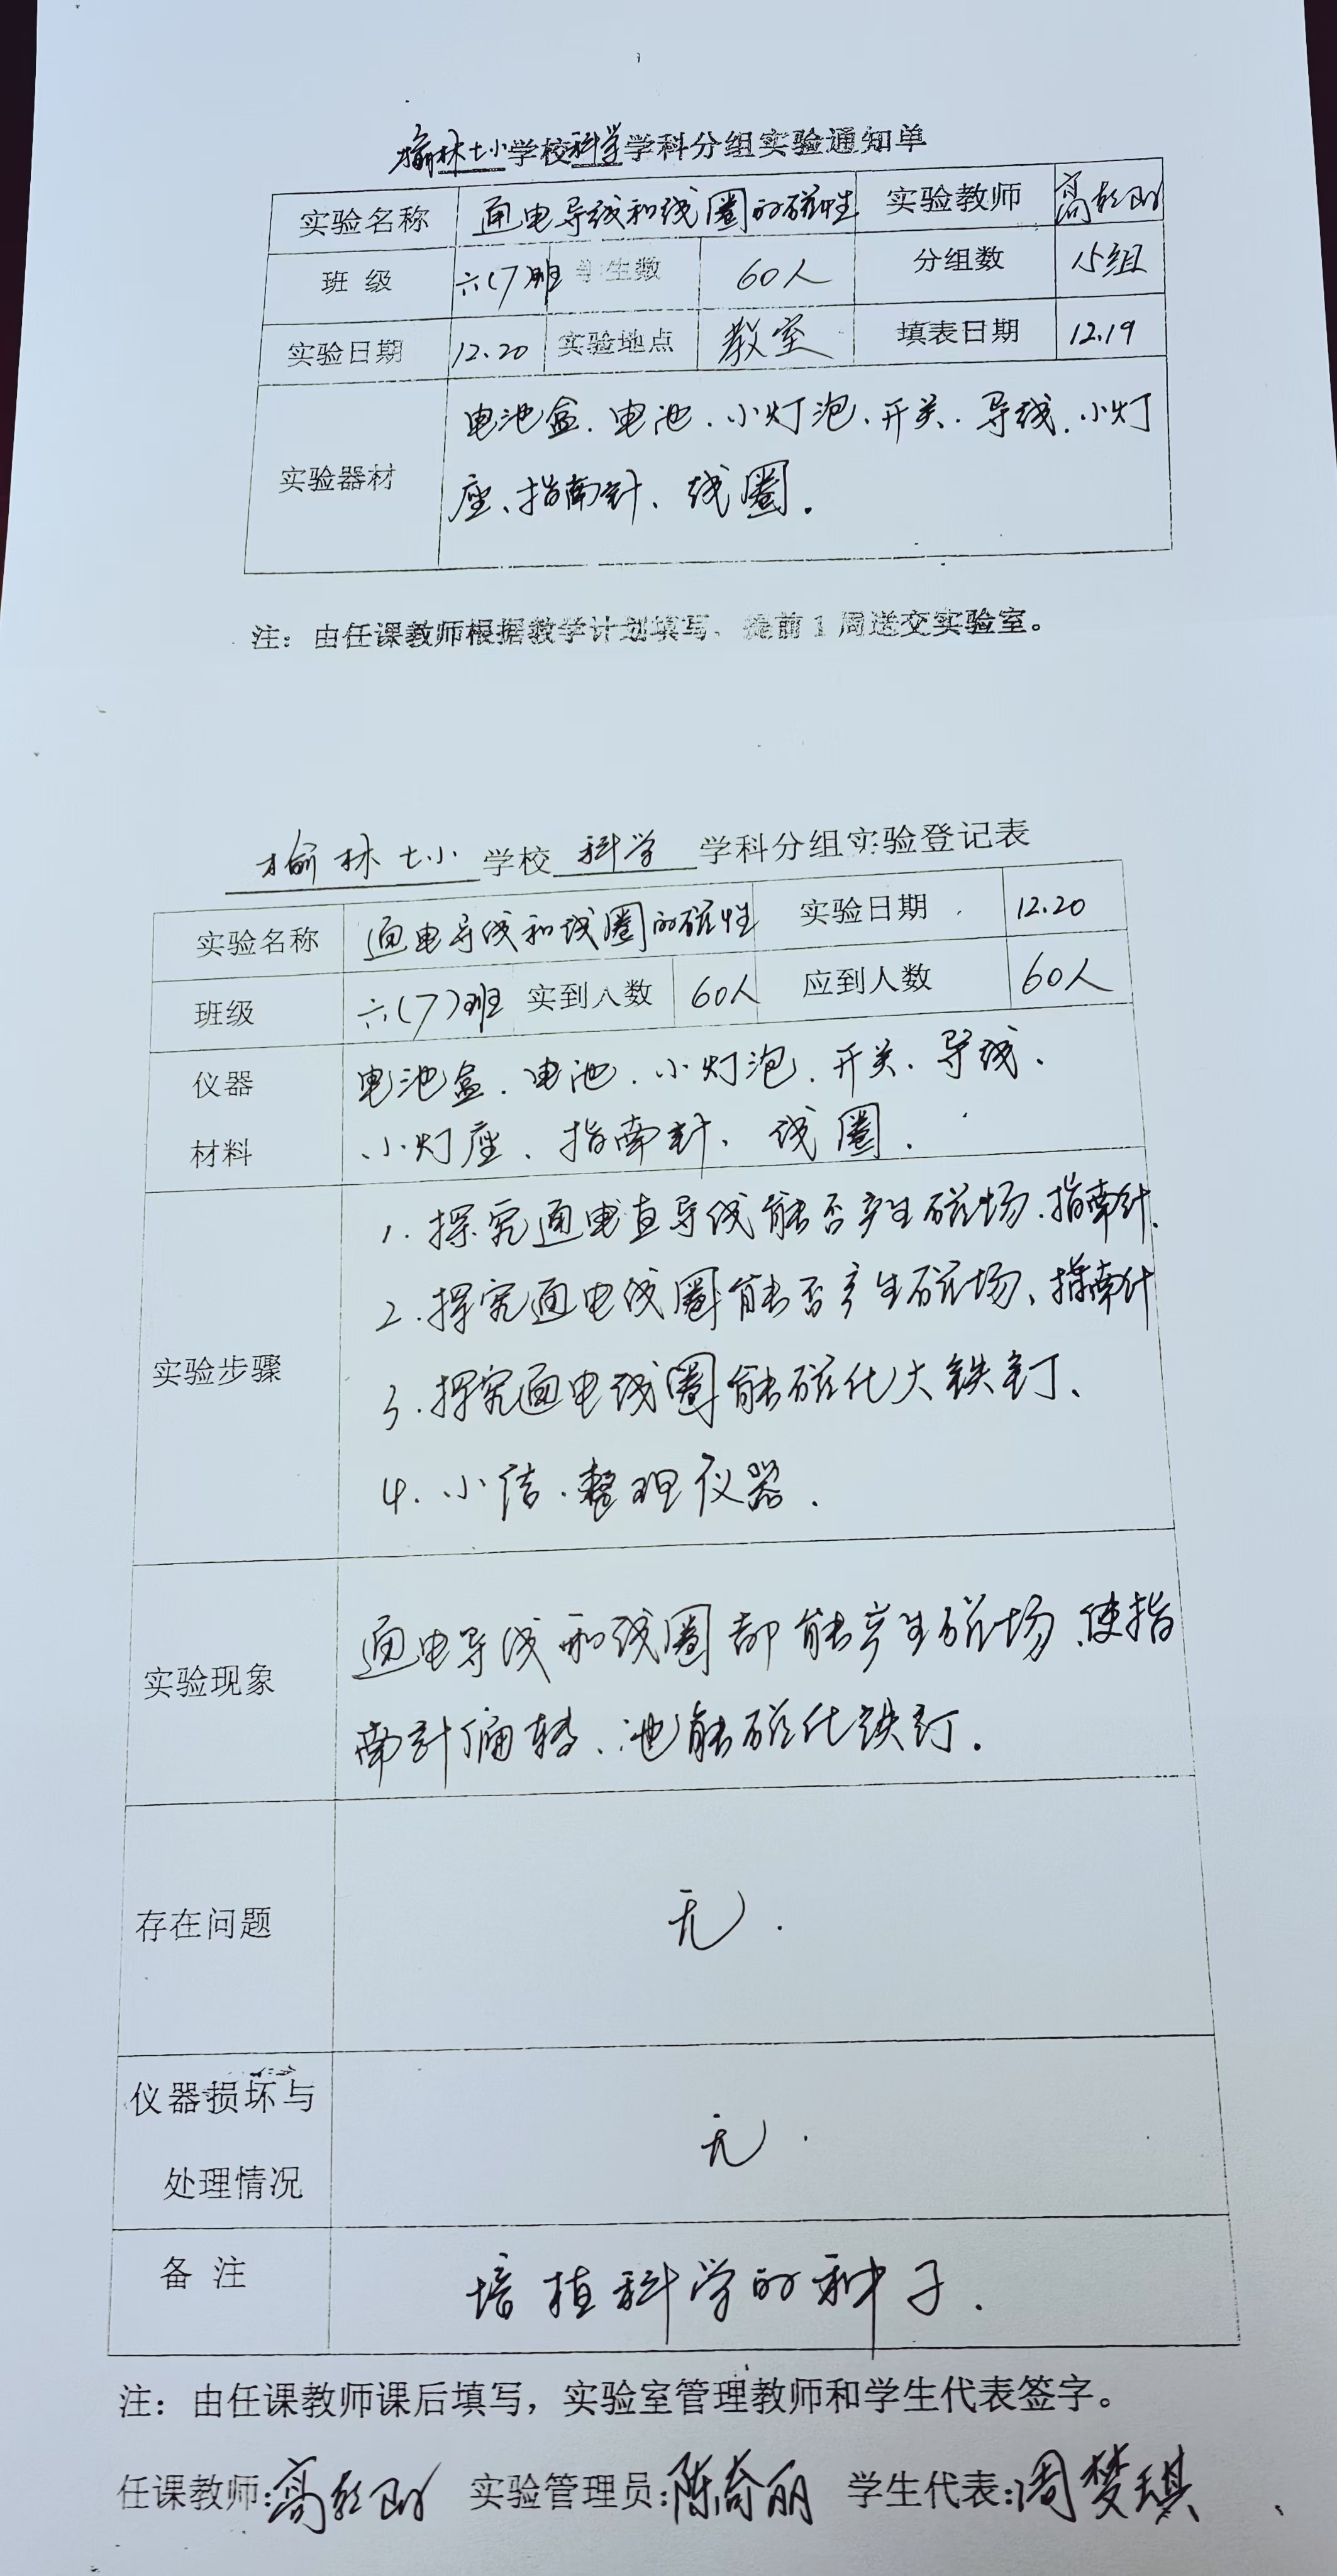 榆林七小学校科学学科分组实验通知单
实验名称 通电导线和线圈的磁性 实验教师
班 级 六(7)班 学生数 60人 分组数 15组
实验日期 12.20 实验地点 教室 填表日期 12.19
实验器材 电池盒、电池、小灯泡、开关、导线、小灯
座、指南针、线圈。
注：由任课教师根据教学计划填写，提前1周送交实验室。
榆林七小 学校 科学 学科分组实验登记表
实验名称 通电导线和线圈的磁性 实验日期 12.20
班级 六(7)班 实到人数 60人 应到人数 60人
仪器 电池盒、电池、小灯泡、开关、导线、
材料 小灯座、指南针、线圈。
1. 探究通电直导线能否产生磁场、指南针、
2. 探究通电线圈能否产生磁场、指南针
实验步骤
3. 探究通电线圈能磁化大铁钉、
4. 小结、整理仪器.
通电导线和线圈都能产生磁场、使指
实验现象
南针偏转、也能磁化铁钉。
存在问题 无.
仪器损坏与
无.
处理情况
备 注 培植科学的种子.
注：由任课教师课后填写，实验室管理教师和学生代表签字。
任课教师: 实验管理员:陈奇丽 学生代表:周梦琪